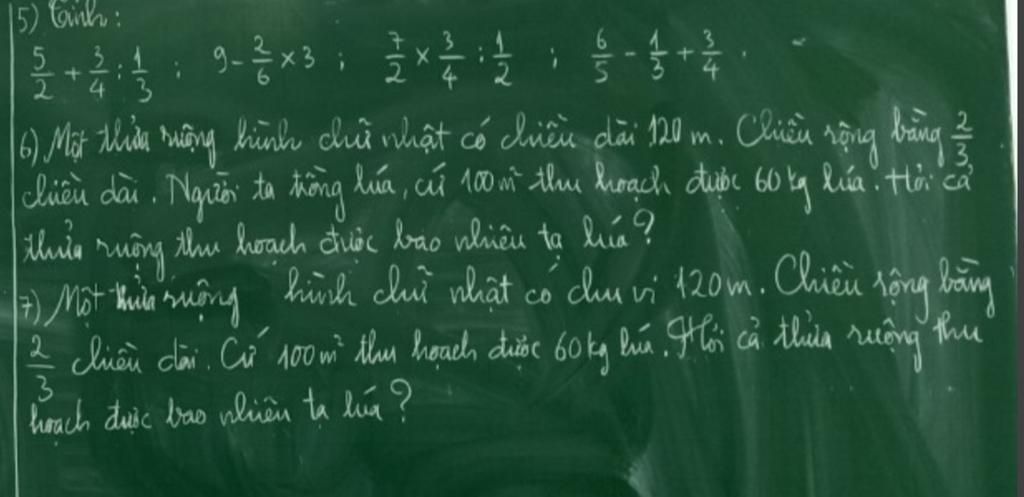 5) Tính:
5/2 + 3/4 : 1/3 ; 9 - 2/6 × 3 ; 7/2 × 3/4 : 1/2 ; 6/5 - 1/3 + 3/4 .
6) Một thửa ruộng hình chữ nhật có chiều dài 120 m. Chiều rộng bằng 2/3
chiều dài. Người ta trồng lúa, cứ 100 m² thu hoạch được 60 kg lúa. Hỏi cả
thửa ruộng thu hoạch được bao nhiêu tạ lúa?
7) Một thửa ruộng hình chữ nhật có chu vi 120 m. Chiều rộng bằng
2/3 chiều dài. Cứ 100 m² thu hoạch được 60 kg lúa. Hỏi cả thửa ruộng thu
hoạch được bao nhiêu tạ lúa?